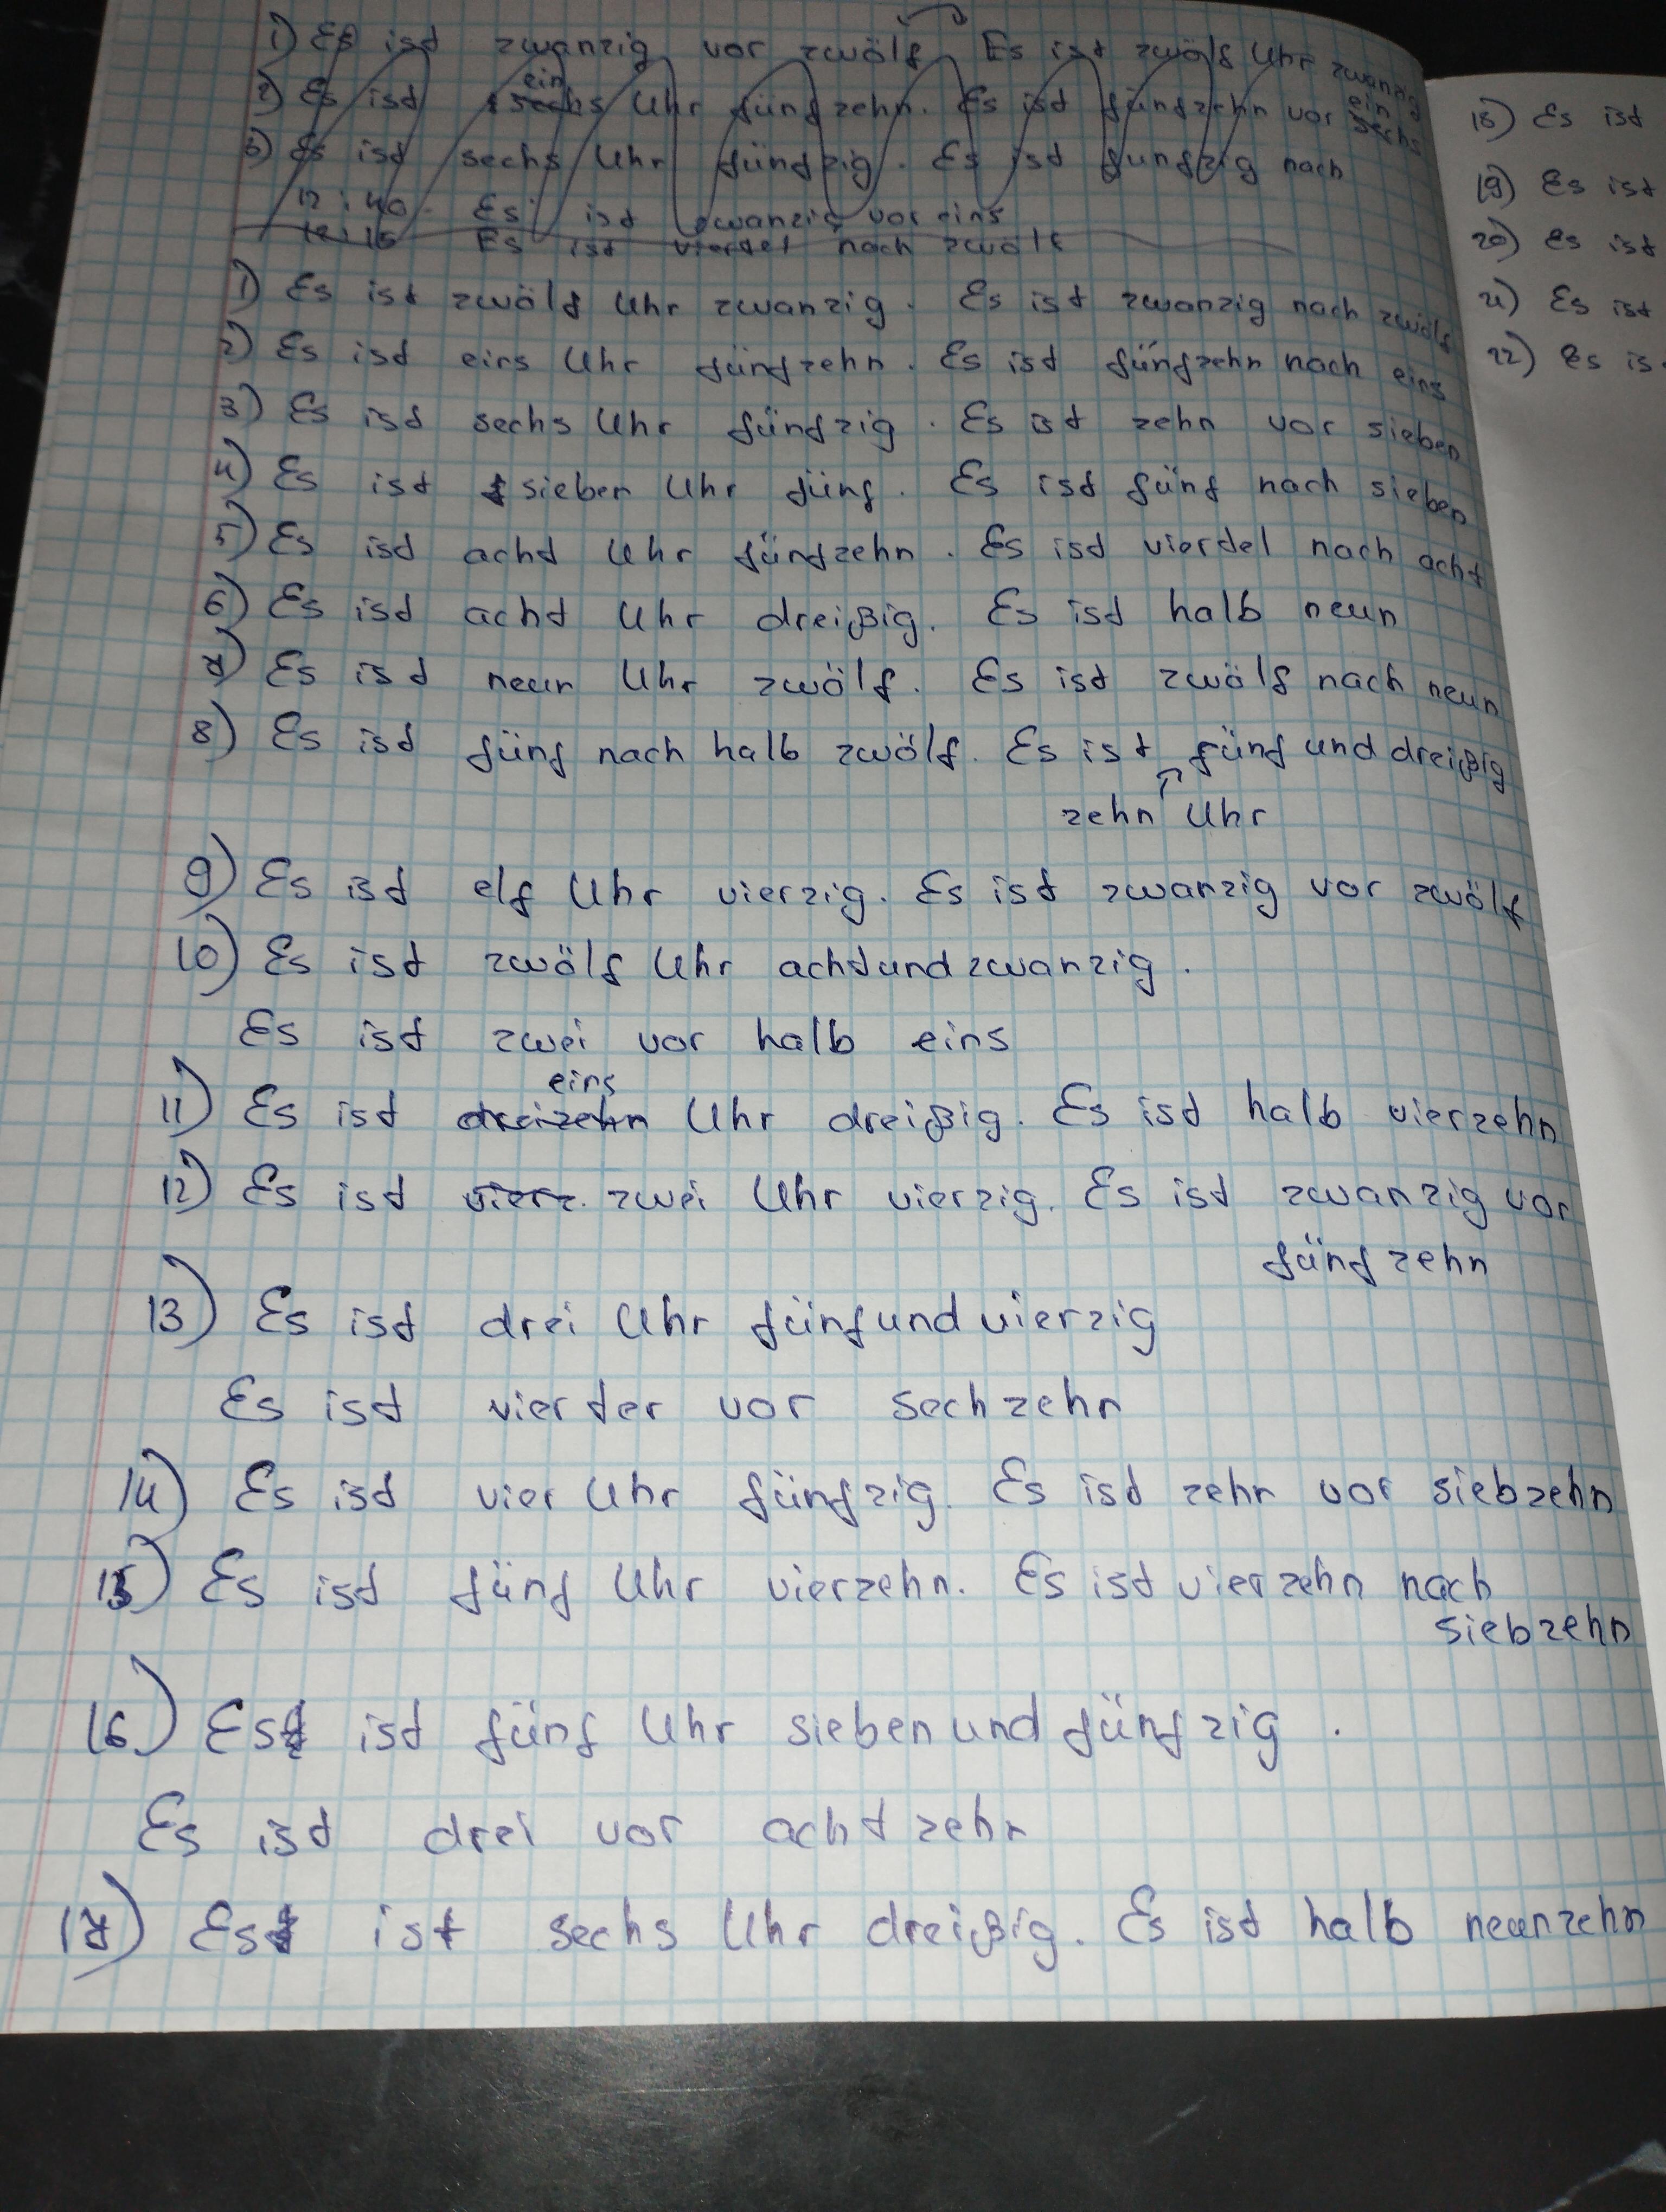 1) Es ist zwanzig vor zwölf Es ist zwölf Uhr zwanzig
ein
2) Es ist sechs Uhr fünfzehn. Es ist fünfzehn vor sechs
ein
3) Es ist sechs Uhr fünfzig. Es ist fünfzig nach
12:40 Es ist zwanzig vor eins
12:15 Es ist viertel nach zwölf
1) Es ist zwölf Uhr zwanzig. Es ist zwanzig nach zwölf
2) Es ist eins Uhr fünfzehn. Es ist fünfzehn nach eins
3) Es ist sechs Uhr fünfzig. Es ist zehn vor sieben
4) Es ist sieben Uhr fünf. Es ist fünf nach sieben
5) Es ist acht Uhr fünfzehn. Es ist vierdel nach acht
6) Es ist acht Uhr dreißig. Es ist halb neun
7) Es ist neun Uhr zwölf. Es ist zwölf nach neun
8) Es ist fünf nach halb zwölf. Es ist fünf und dreißig
zehn Uhr
9) Es ist elf Uhr vierzig. Es ist zwanzig vor zwölf
10) Es ist zwölf Uhr achtundzwanzig.
Es ist zwei vor halb eins
eins
11) Es ist dreizehn Uhr dreißig. Es ist halb vierzehn
12) Es ist vierz. zwei Uhr vierzig. Es ist zwanzig vor
fünfzehn
13) Es ist drei Uhr fünfundvierzig
Es ist vierter vor sechzehn
14) Es ist vier Uhr fünfzig. Es ist zehn vor siebzehn
15) Es ist fünf Uhr vierzehn. Es ist vierzehn nach
siebzehn
16) Es ist fünf Uhr siebenundfünfzig.
Es ist drei vor achtzehn
17) Es ist sechs Uhr dreißig. Es ist halb neunzehn
18) Es ist
19) Es ist
20) Es ist
21) Es ist
22) Es is